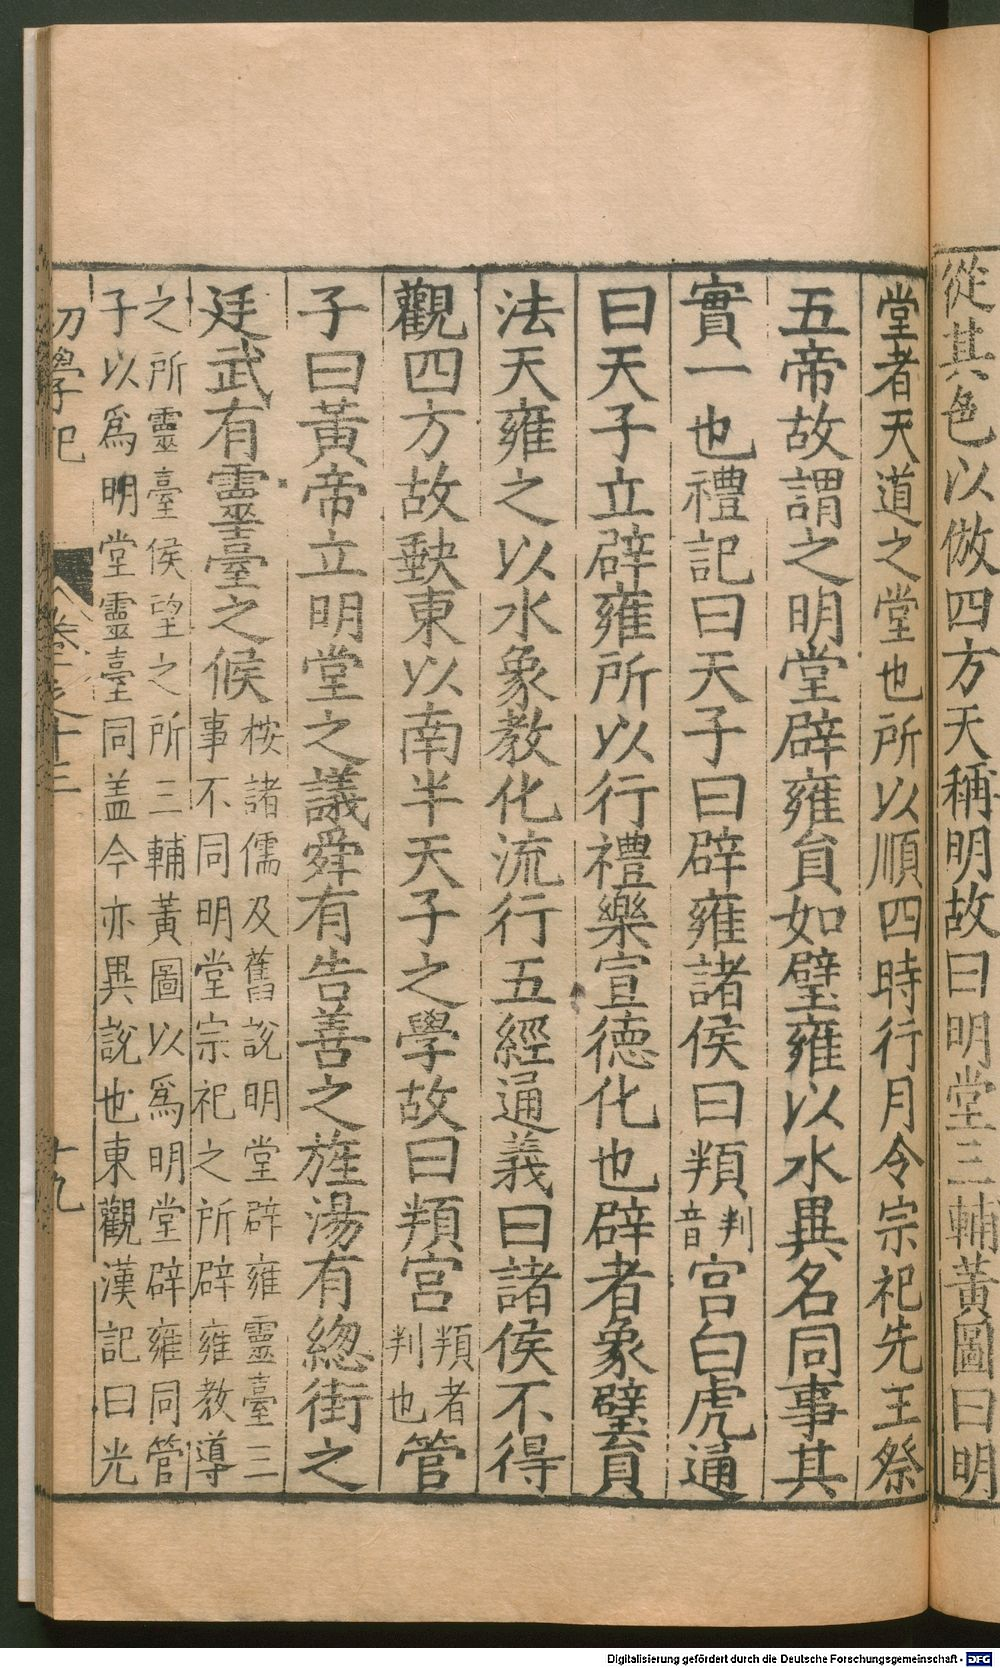 從其色以倣四方天稱明故曰明堂三輔黃圖曰明
堂者天道之堂也所以順四時行月令宗祀先王祭
五帝故謂之明堂辟雍員如璧雍以水異名同事其
實一也禮記曰天子曰辟雍諸侯曰頖音判宮白虎通
曰天子立辟雍所以行禮樂宣德化也辟者象璧員
法天雍之以水象教化流行五經通義曰諸侯不得
觀四方故缺東以南半天子之學故曰頖宮頖者判也管
子曰黃帝立明堂之議舜有告善之旌湯有緫街之
廷武有靈臺之候桉諸儒及舊說明堂辟雍靈臺三
事不同明堂宗祀之所辟雍教導
之所靈臺侯望之所三輔黃圖以爲明堂辟雍同管
子以爲明堂靈臺同盖今亦異說也東觀漢記曰光
初學記 卷之十三 十九
Digitalisierung gefördert durch die Deutsche Forschungsgemeinschaft - DFG